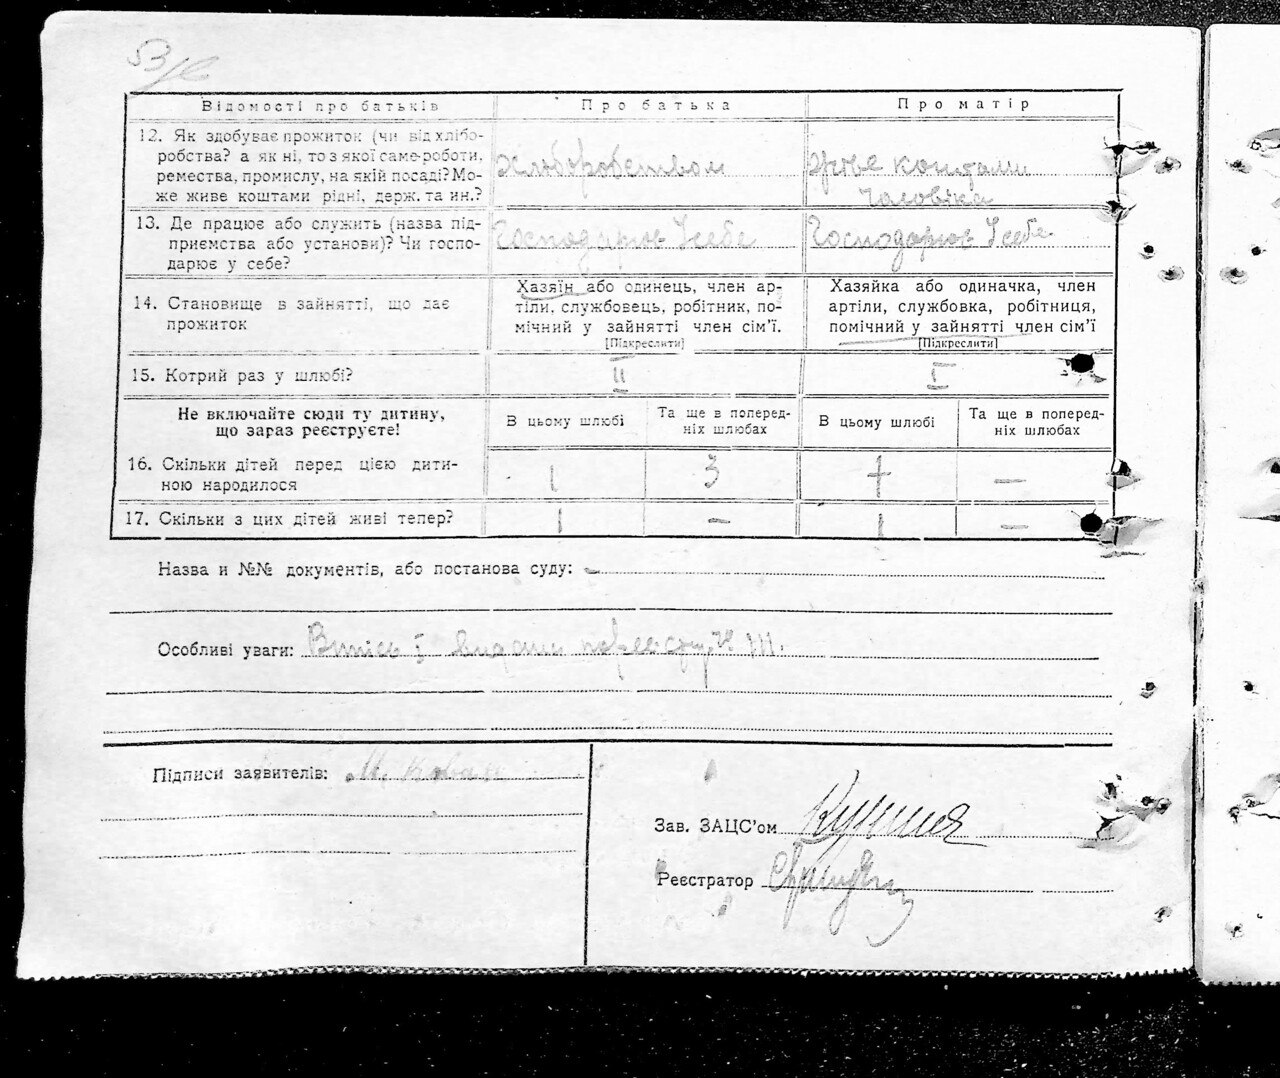 Відомості про батьків Про батька Про матір
12. Як здобуває прожиток (чи від хлібо-
робства? а як ні, то з якої саме роботи,
ремества, промислу, на якій посаді? Мо-
же живе коштами рідні, держ. та ин.?
Хліборобством
Живе коштами
чаловіка
13. Де працює або служить (назва під-
приємства або установи)? Чи госпо-
дарює у себе?
Господарює У себе
Господарює У себе
14. Становище в зайнятті, що дає
прожиток
Хазяїн або одинець, член ар-
тіли, службовець, робітник, по-
мічний у зайнятті член сім'ї.
[Підкреслити]
Хазяйка або одиначка, член
артіли, службовка, робітниця,
помічний у зайнятті член сім'ї
[Підкреслити]
15. Котрий раз у шлюбі? II I
Не включайте сюди ту дитину,
що зараз реєструєте!
В цьому шлюбі
Та ще в поперед-
ніх шлюбах
В цьому шлюбі
Та ще в поперед-
ніх шлюбах
16. Скільки дітей перед цією дити-
ною народилося
1 3 1 —
17. Скільки з цих дітей живі тепер? 1 — 1 —
Назва и №№ документів, або постанова суду: —
Особливі уваги:
Підписи заявителів: М. Коваль
Зав. ЗАЦС'ом
Реєстратор